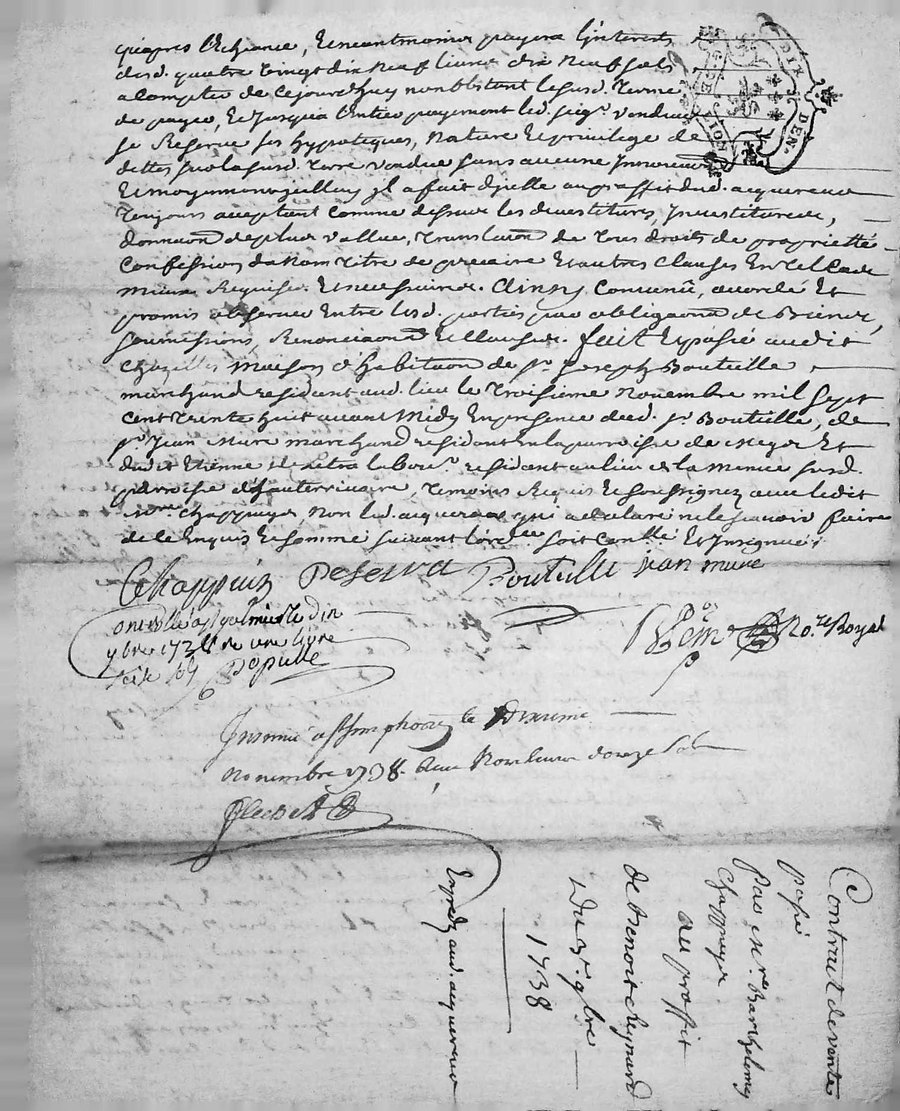 cy apres Echeance, Et neantmoins payera L'interests
desd. quatre vingt dix neuf livres dix neuf sols
a Compter de Cejourdhuy nonobstant lesusd. terme
de payer, Et jusqu'a l'entier payement led. sieur vendeur
se Reserve ses hypoteques, Nature Et privilege de
dettes sur lasusd. terre vendue sans aucune
Et moyennant quelluy jl a fait d'jcelle au proffit dud. acquereur
toujours acceptant Comme dessus les devestitures, Jnvestitures,
donnaon de plus vallue, translaon de tous droits de proprietté
Confession du nom titre de precaire Et autres Clauses En tel Cas
mieux Requises Et necessaires. Ainsy Convenû, accordé Et
promis observer Entre lesd. parties par obligaons de Biens,
soumissions, Renonciaons Et Clauses. fait Et passé audit
Chazelles maison d'habitaon de sr. Joseph Bouteille
marchand residant aud. lieu le troisieme Novembre mil sept
Cent trente huit avant Midy En presence dud. sr. Bouteille, de
sr. Jean Mure marchand residant en la parroisse de Et
dudit Etienne labour. residant au lieu de la susd.
parroisse d'hauterivoire, temoins Requis Et soussignez avec ledit
Chappuys, Non led. acquereur qui a declaré ne le scavoir faire
de ce Enquis Et sommé suivant l'ord.ce soit Conllé Et Insignué
Chappuis Deserva Bouteille jean mure
No.re Royal
le dix
9bre 1738 Re une livre
sols Populle
Jnsinué a St Simphorien le dixieme
novembre 1738. Receu douze sols
Contract de vente
passé
Par Mre. Barthelemy
Chappuys
au proffit
de Benoit Reynard
Du 3e. 9bre
1738
Exped. aud. acquereur